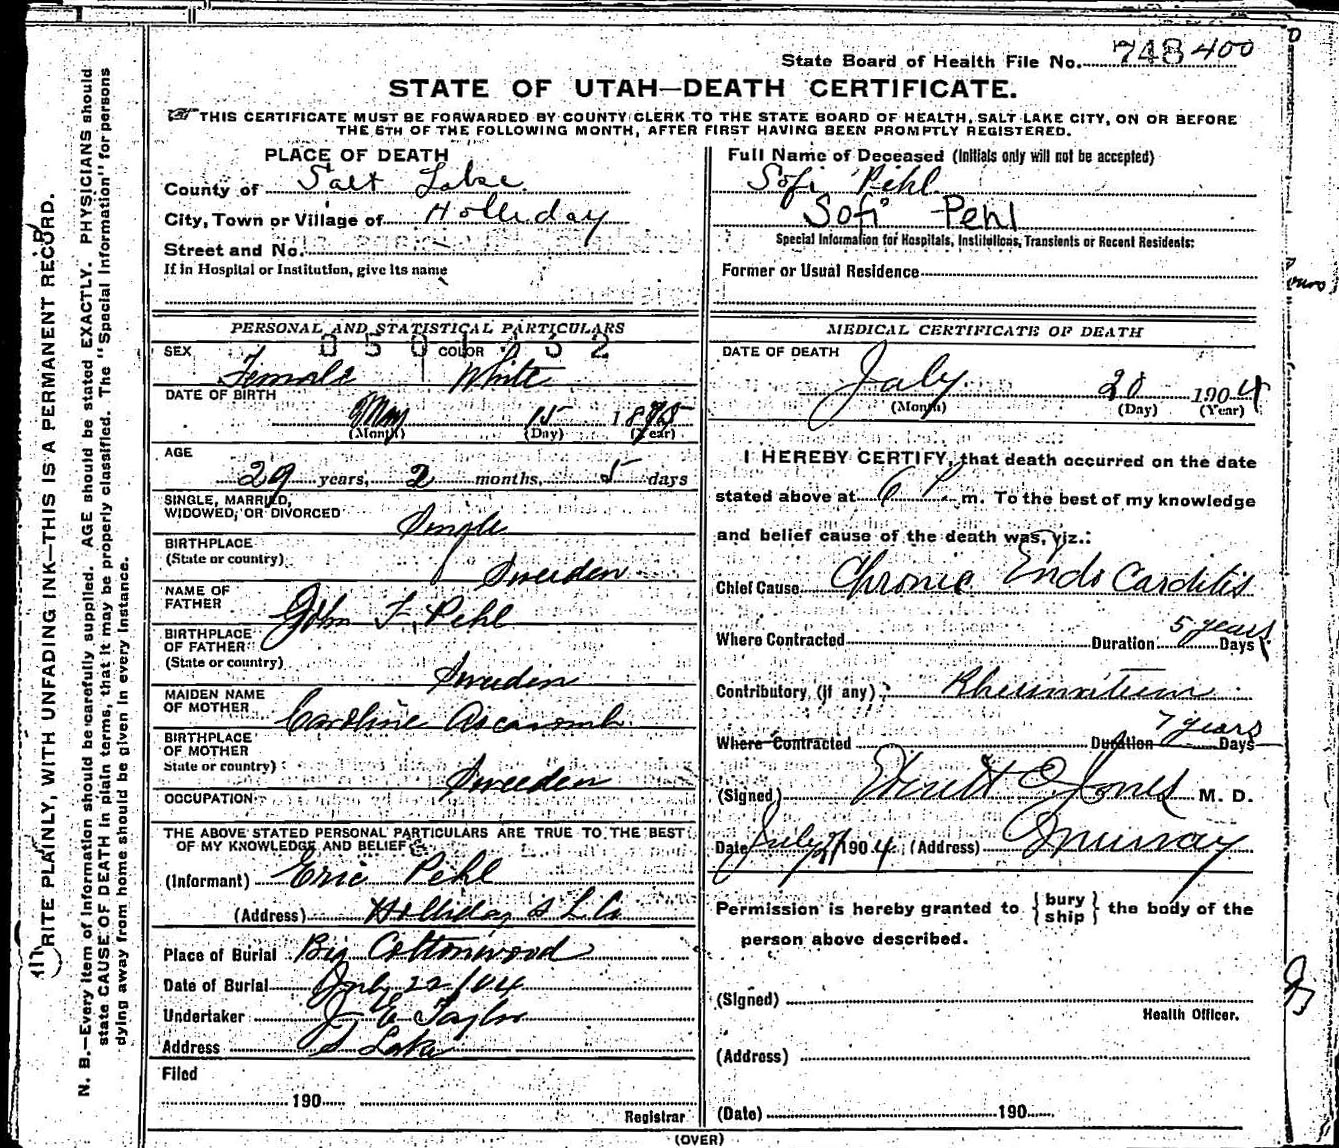 State Board of Health File No. 748 400
STATE OF UTAH—DEATH CERTIFICATE.
THIS CERTIFICATE MUST BE FORWARDED BY COUNTY CLERK TO THE STATE BOARD OF HEALTH, SALT LAKE CITY, ON OR BEFORE
THE 5TH OF THE FOLLOWING MONTH, AFTER FIRST HAVING BEEN PROMPTLY REGISTERED.
PLACE OF DEATH
County of Salt Lake.
City, Town or Village of Holliday
Street and No.
If in Hospital or Institution, give its name
PERSONAL AND STATISTICAL PARTICULARS
SEX COLOR
Female White
DATE OF BIRTH
May 15 1875
(Month) (Day) (Year)
AGE
29 years, 2 months, 5 days
SINGLE, MARRIED,
WIDOWED, OR DIVORCED Single
BIRTHPLACE
(State or country) Sweden
NAME OF
FATHER John F. Pehl
BIRTHPLACE
OF FATHER
(State or country) Sweden
MAIDEN NAME
OF MOTHER Caroline
BIRTHPLACE
OF MOTHER
State or country) Sweeden
OCCUPATION
THE ABOVE STATED PERSONAL PARTICULARS ARE TRUE TO THE BEST
OF MY KNOWLEDGE AND BELIEF
(Informant) Eric Pehl
(Address) Holliday S L Co
Place of Burial Big Cottonwood
Date of Burial July 22/04
Undertaker J E Taylor
Address S Lake
Filed
190
Registrar
Full Name of Deceased (Initials only will not be accepted)
Sofi Pihl
Sofi Pehl
Special Information for Hospitals, Institutions, Transients or Recent Residents:
Former or Usual Residence
MEDICAL CERTIFICATE OF DEATH
DATE OF DEATH
July 20 1904
(Month) (Day) (Year)
I HEREBY CERTIFY, that death occurred on the date
stated above at 6 P. m. To the best of my knowledge
and belief cause of the death was, viz.:
Chief Cause Chronic Endo Carditis
Where Contracted Duration 5 years Days
Contributory, (if any) Rheumatism
Where Contracted Duration 7 years Days
(Signed) Everett C. Jones M. D.
Date July 21 1904. (Address) Murray
Permission is hereby granted to { bury ship } the body of the
person above described.
(Signed)
Health Officer.
(Address)
(Date) 190
(OVER)
N. B.—Every item of information should be carefully supplied. AGE should be stated EXACTLY. PHYSICIANS should
state CAUSE OF DEATH in plain terms, that it may be properly classified. The "Special Information" for persons
dying away from home should be given in every instance.
WRITE PLAINLY, WITH UNFADING INK—THIS IS A PERMANENT RECORD.